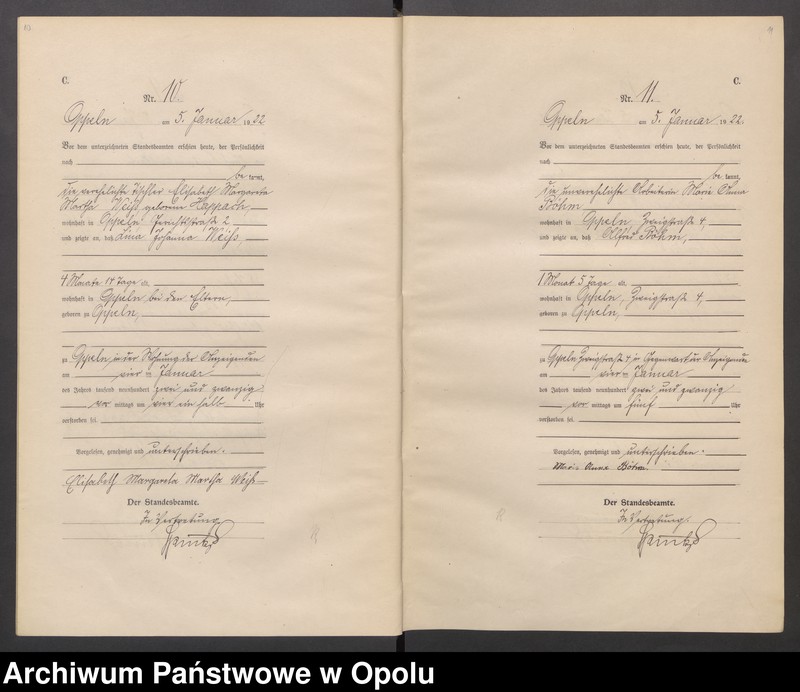 C.
Nr. 10.
Oppeln am 5. Januar 1922
Vor dem unterzeichneten Standesbeamten erschien heute, der Persönlichkeit
nach
be kannt,
die verehelichte Tischler Elisabeth Margareta
Martha Weiß geborene
wohnhaft in Oppeln 2
und zeigte an, daß Lina Johanna Weiß,
4 Monate 14 Tage alt,
wohnhaft in Oppeln bei den Eltern,
geboren zu Oppeln,
zu Oppeln in der Wohnung der Anzeigenden
am vier ten Januar
des Jahres tausend neunhundert zwei und zwanzig
vor mittags um vier ein halb Uhr
verstorben sei.
Vorgelesen, genehmigt und unterschrieben.
Elisabeth Margareta Martha Weiß
Der Standesbeamte.
In Vertretung
C.
Nr. 11.
Oppeln am 5. Januar 1922.
Vor dem unterzeichneten Standesbeamten erschien heute, der Persönlichkeit
nach
be kannt,
die unverehelichte Arbeiterin Marie Anna
Böhm
wohnhaft in Oppeln, Zweigstraße 4,
und zeigte an, daß Alfred Böhm,
1 Monat 5 Tage alt,
wohnhaft in Oppeln, Zweigstraße 4,
geboren zu Oppeln,
zu Oppeln Zweigstraße 4 in Gegenwart der Anzeigenden
am vier ten Januar
des Jahres tausend neunhundert zwei und zwanzig
vor mittags um fünf Uhr
verstorben sei.
Vorgelesen, genehmigt und unterschrieben.
Marie Anna Böhm.
Der Standesbeamte.
In Vertretung.
Archiwum Państwowe w Opolu